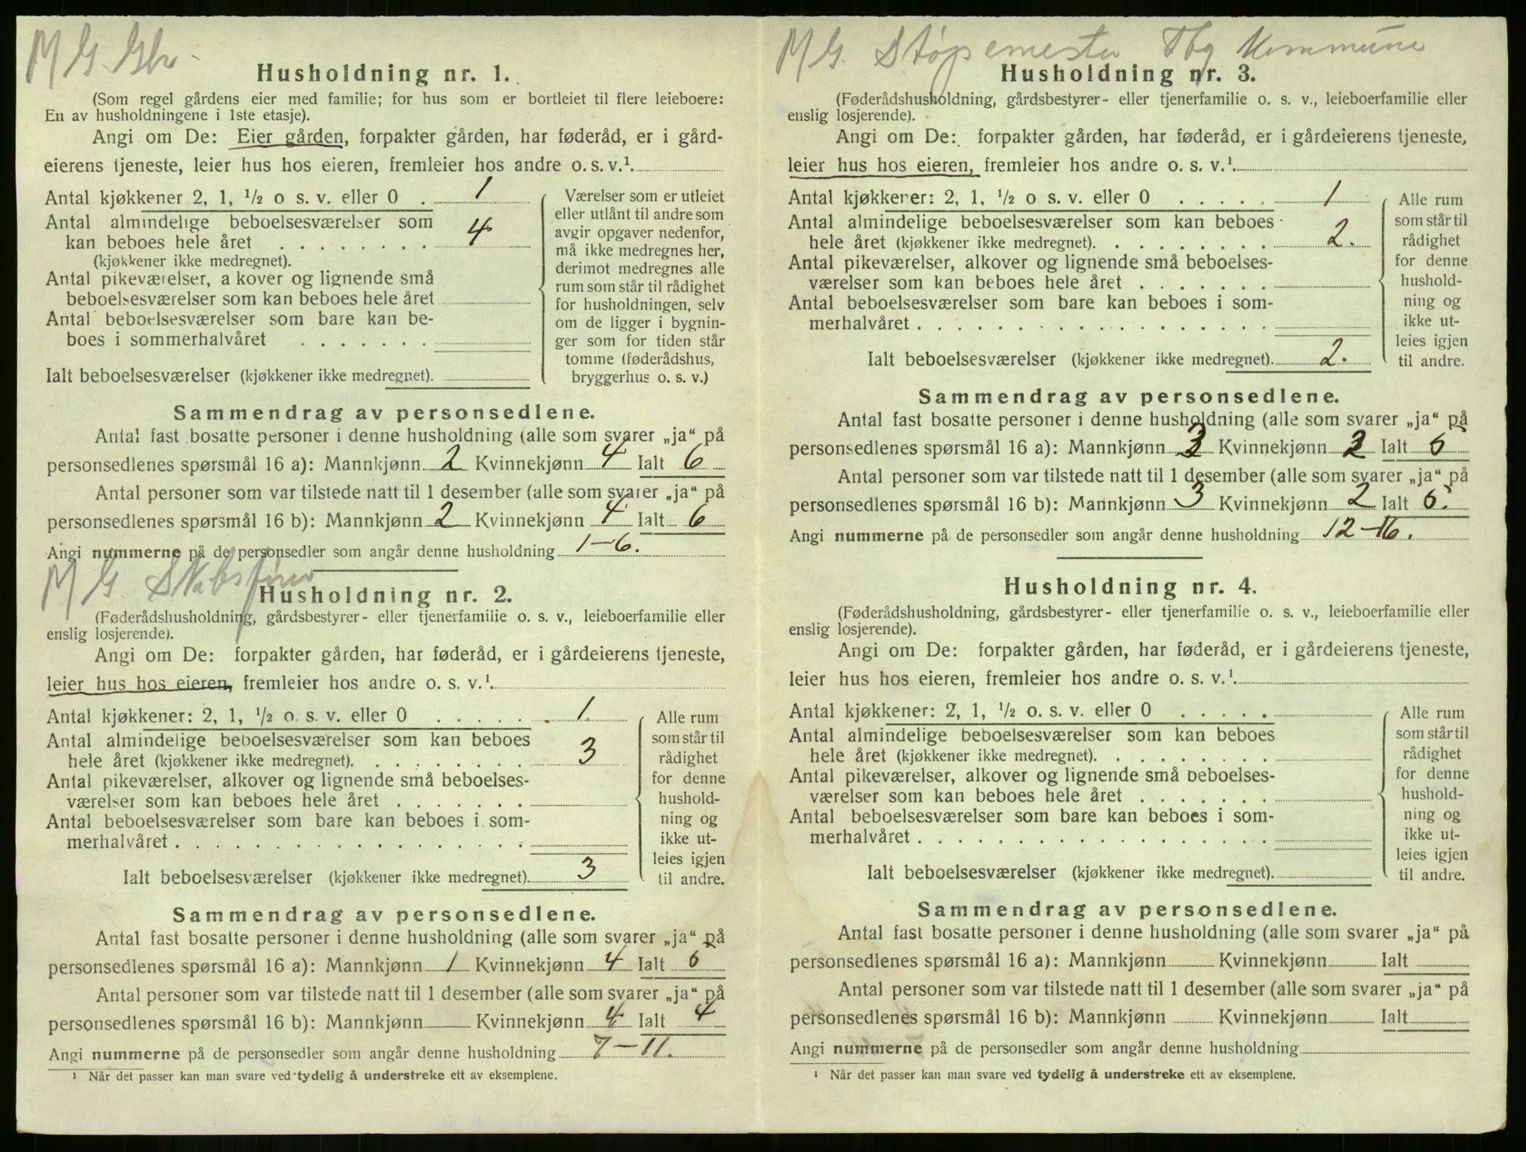 M G. Gbr.
Husholdning nr. 1.
(Som regel gårdens eier med familie; for hus som er bortleiet til flere leieboere:
En av husholdningene i 1ste etasje).
Angi om De: Eier gården, forpakter gården, har føderåd, er i gård-
eierens tjeneste, leier hus hos eieren, fremleier hos andre o. s. v.¹.
Antal kjøkkener 2, 1, ½ o s. v. eller 0 . 1
Antal almindelige beboelsesværelser som
kan beboes hele året . . . . . . . . 4
(kjøkkener ikke medregnet).
Antal pikeværelser, a kover og lignende små
beboelsesværelser som kan beboes hele året
Antal beboelsesværelser som bare kan be-
boes i sommerhalvåret . . . . . . .
Ialt beboelsesværelser (kjøkkener ikke medregnet).
Værelser som er utleiet
eller utlånt til andre som
avgir opgaver nedenfor,
må ikke medregnes her,
derimot medregnes alle
rum som står til rådighet
for husholdningen, selv
om de ligger i bygnin-
ger som for tiden står
tomme (føderådshus,
bryggerhus o. s. v.)
Sammendrag av personsedlene.
Antal fast bosatte personer i denne husholdning (alle som svarer „ja“ på
personsedlenes spørsmål 16 a): Mannkjønn 2 Kvinnekjønn 4 Ialt 6
Antal personer som var tilstede natt til 1 desember (alle som svarer „ja“ på
personsedlenes spørsmål 16 b): Mannkjønn 2 Kvinnekjønn 4 Ialt 6
Angi nummerne på de personsedler som angår denne husholdning 1-6.
M G.
Husholdning nr. 2.
(Føderådshusholdning, gårdsbestyrer- eller tjenerfamilie o. s. v., leieboerfamilie eller
enslig losjerende).
Angi om De: forpakter gården, har føderåd, er i gårdeierens tjeneste,
leier hus hos eieren, fremleier hos andre o. s. v.¹.
Antal kjøkkener: 2, 1, ½ o. s. v. eller 0 . . . . . . 1.
Antal almindelige beboelsesværelser som kan beboes
hele året (kjøkkener ikke medregnet). . . . . . . . 3
Antal pikeværelser, alkover og lignende små beboelses-
værelser som kan beboes hele året . . . . . . .
Antal beboelsesværelser som bare kan beboes i som-
merhalvåret . . . . . . . . . . . . . . . . . .
Ialt beboelsesværelser (kjøkkener ikke medregnet). 3
Alle rum
som står til
rådighet
for denne
hushold-
ning og
ikke ut-
leies igjen
til andre.
Sammendrag av personsedlene.
Antal fast bosatte personer i denne husholdning (alle som svarer „ja“ på
personsedlenes spørsmål 16 a): Mannkjønn 1 Kvinnekjønn 4 Ialt 5
Antal personer som var tilstede natt til 1 desember (alle som svarer „ja“ på
personsedlenes spørsmål 16 b): Mannkjønn Kvinnekjønn 4 Ialt 4
Angi nummerne på de personsedler som angår denne husholdning 7-11.
¹ Når det passer kan man svare ved tydelig å understreke ett av eksemplene.
M G. Støpemester Tbg Kommune
Husholdning nr. 3.
(Føderådshusholdning, gårdsbestyrer- eller tjenerfamilie o. s. v., leieboerfamilie eller
enslig losjerende).
Angi om De: forpakter gården, har føderåd, er i gårdeierens tjeneste,
leier hus hos eieren, fremleier hos andre o. s. v.¹.
Antal kjøkkener: 2, 1, ½ o s. v. eller 0 . . . . . 1
Antal almindelige beboelsesværelser som kan beboes
hele året (kjøkkener ikke medregnet). . . . . . . . 2.
Antal pikeværelser, alkover og lignende små beboelses-
værelser som kan beboes hele året . . . . . . .
Antal beboelsesværelser som bare kan beboes i som-
merhalvåret . . . . . . . . . . . . . . . . . .
Ialt beboelsesværelser (kjøkkener ikke medregnet). 2.
Alle rum
som står til
rådighet
for denne
hushold-
ning og
ikke ut-
leies igjen
til andre.
Sammendrag av personsedlene.
Antal fast bosatte personer i denne husholdning (alle som svarer „ja“ på
personsedlenes spørsmål 16 a): Mannkjønn 3 Kvinnekjønn 2 Ialt 5
Antal personer som var tilstede natt til 1 desember (alle som svarer „ja“ på
personsedlenes spørsmål 16 b): Mannkjønn 3 Kvinnekjønn 2 Ialt 5.
Angi nummerne på de personsedler som angår denne husholdning 12-16.
Husholdning nr. 4.
(Føderådshusholdning, gårdsbestyrer- eller tjenerfamilie o. s. v., leieboerfamilie eller
enslig losjerende).
Angi om De: forpakter gården, har føderåd, er i gårdeierens tjeneste,
leier hus hos eieren, fremleier hos andre o. s. v.¹.
Antal kjøkkener: 2, 1, ½ o. s. v. eller 0 . . . . .
Antal almindelige beboelsesværelser som kan beboes
hele året (kjøkkener ikke medregnet). . . . . . . .
Antal pikeværelser, alkover og lignende små beboelses-
værelser som kan beboes hele året . . . . . . .
Antal beboelsesværelser som bare kan beboes i som-
merhalvåret . . . . . . . . . . . . . . . . . .
Ialt beboelsesværelser (kjøkkener ikke medregnet).
Alle rum
som står til
rådighet
for denne
hushold-
ning og
ikke ut-
leies igjen
til andre.
Sammendrag av personsedlene.
Antal fast bosatte personer i denne husholdning (alle som svarer „ja“ på
personsedlenes spørsmål 16 a): Mannkjønn Kvinnekjønn Ialt
Antal personer som var tilstede natt til 1 desember (alle som svarer „ja“ på
personsedlenes spørsmål 16 b): Mannkjønn Kvinnekjønn Ialt
Angi nummerne på de personsedler som angår denne husholdning
¹ Når det passer kan man svare ved tydelig å understreke ett av eksemplene.